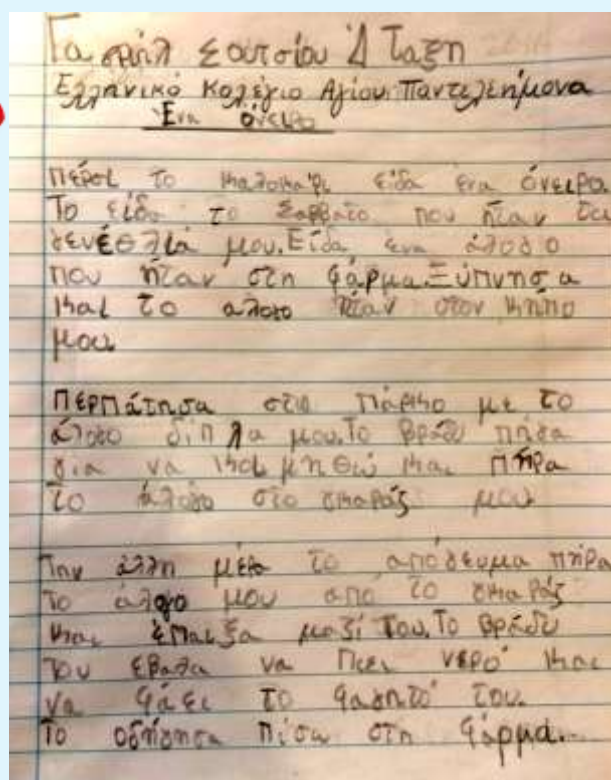 Γασμήλ Σουτσίου Δ Ταξη
Ελληνικό Κολέγιο Αγίου Παντελεήμονα
Ένα όνειρο
πέρσι το καλοκαίρι είδα ένα όνειρο.
Το είδα το Σαββάτο που ήταν τα
γενέθλιά μου. Είδα ένα άλογο
που ήταν στη φάρμα. Ξύπνησα
και το αλογο ήταν στον κήπο
μου
Περπάτησα στο πάρκο με το
άλογο δίπλα μου. Το βράδυ πήγα
για να κοιμηθώ και πήρα
το άλογο στο γκαράζ μου
Την άλλη μέρα το απόγευμα πήρα
το άλογο μου από το γκαράζ
και έπαιξα μαζί του. Το βράδυ
του έβαλα να πιει νερό και
να φάει το φαγητό του.
Το οδήγησα πίσω στη φάρμα..